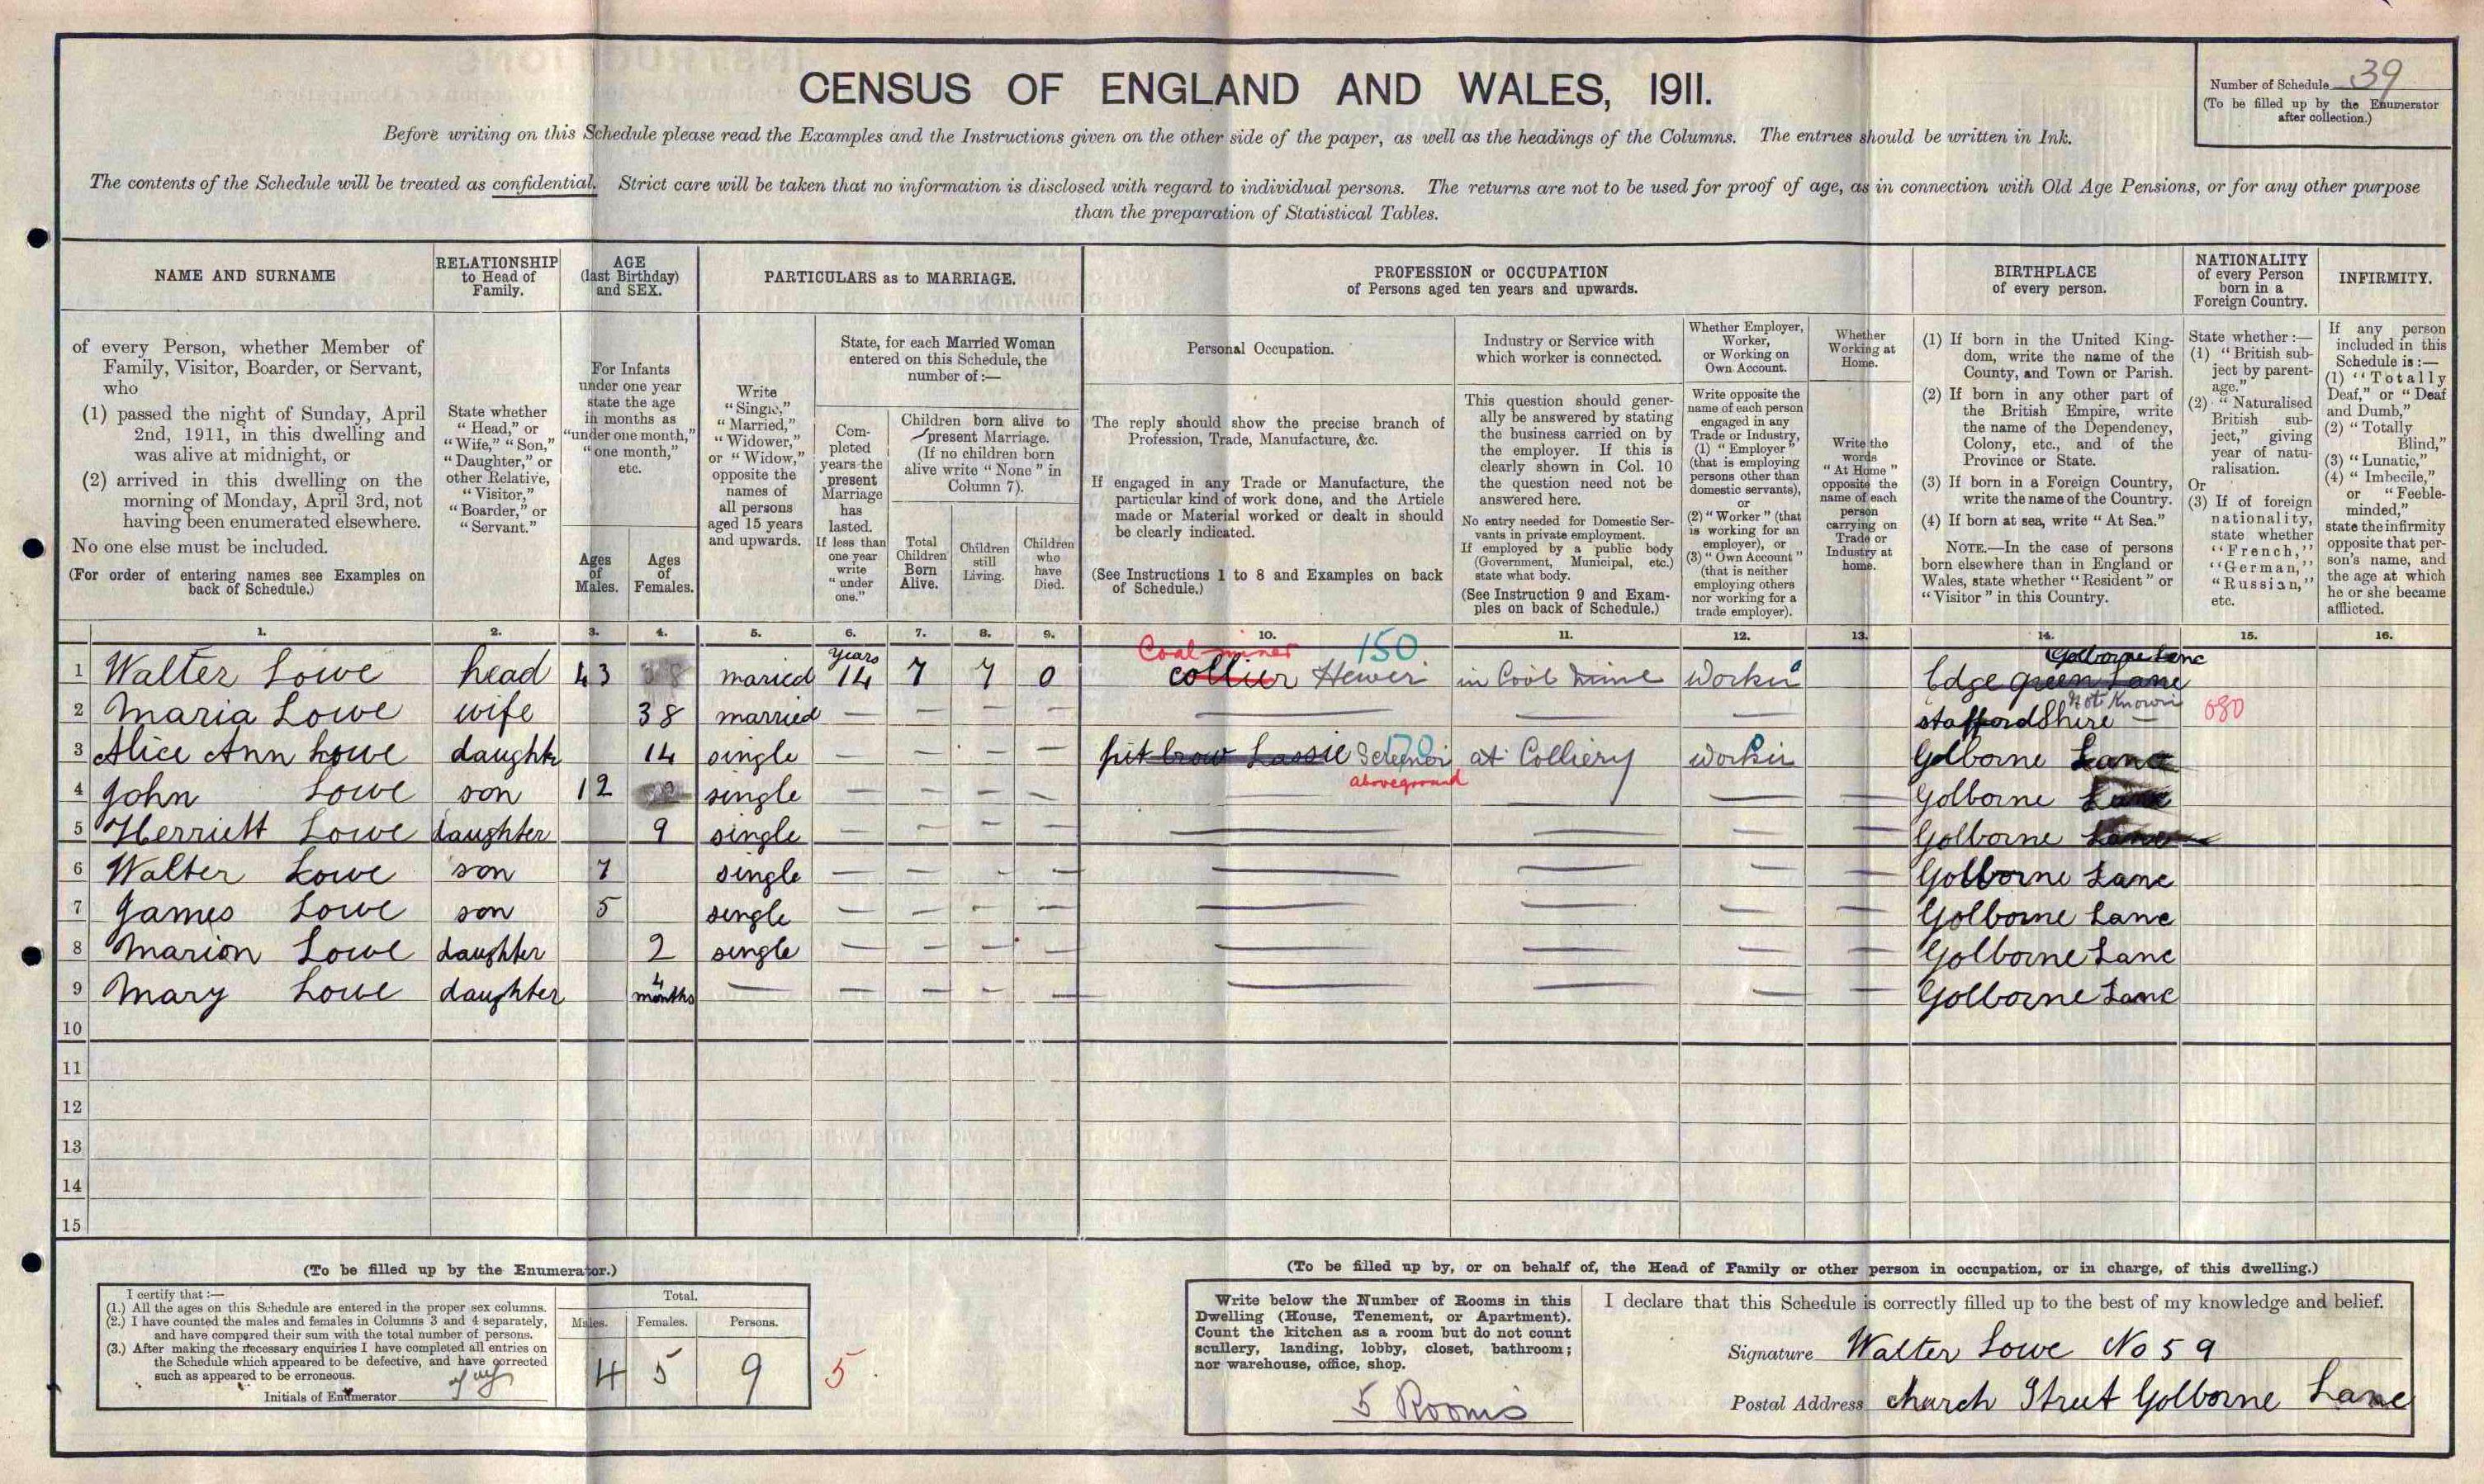 CENSUS OF ENGLAND AND WALES, 1911.
Number of Schedule 39
(To be filled up by the Enumerator
after collection.)
Before writing on this Schedule please read the Examples and the Instructions given on the other side of the paper, as well as the headings of the Columns. The entries should be written in Ink.
The contents of the Schedule will be treated as confidential. Strict care will be taken that no information is disclosed with regard to individual persons. The returns are not to be used for proof of age, as in connection with Old Age Pensions, or for any other purpose
than the preparation of Statistical Tables.
NAME AND SURNAME
of every Person, whether Member of
Family, Visitor, Boarder, or Servant,
who
(1) passed the night of Sunday, April
2nd, 1911, in this dwelling and
was alive at midnight, or
(2) arrived in this dwelling on the
morning of Monday, April 3rd, not
having been enumerated elsewhere.
No one else must be included.
(For order of entering names see Examples on
back of Schedule.)
RELATIONSHIP
to Head of
Family.
State whether
"Head," or
"Wife," "Son,"
"Daughter," or
other Relative,
"Visitor,"
"Boarder," or
"Servant."
AGE
(last Birthday)
and SEX.
For Infants
under one year
state the age
in months as
"under one month,"
"one month,"
etc.
Ages
of
Males.
Ages
of
Females.
PARTICULARS as to MARRIAGE.
Write
"Single,"
"Married,"
"Widower,"
or "Widow,"
opposite the
names of
all persons
aged 15 years
and upwards.
State, for each Married Woman
entered on this Schedule, the
number of :—
Com-
pleted
years the
present
Marriage
has
lasted.
If less than
one year
write
"under
one."
Children born alive to
present Marriage.
(If no children born
alive write "None" in
Column 7).
Total
Children
Born
Alive.
Children
still
Living.
Children
who
have
Died.
PROFESSION or OCCUPATION
of Persons aged ten years and upwards.
Personal Occupation.
The reply should show the precise branch of
Profession, Trade, Manufacture, &c.
If engaged in any Trade or Manufacture, the
particular kind of work done, and the Article
made or Material worked or dealt in should
be clearly indicated.
(See Instructions 1 to 8 and Examples on back
of Schedule.)
Industry or Service with
which worker is connected.
This question should gener-
ally be answered by stating
the business carried on by
the employer. If this is
clearly shown in Col. 10
the question need not be
answered here.
No entry needed for Domestic Ser-
vants in private employment.
If employed by a public body
(Government, Municipal, etc.)
state what body.
(See Instruction 9 and Exam-
ples on back of Schedule.)
Whether Employer,
Worker,
or Working on
Own Account.
Write opposite the
name of each person
engaged in any
Trade or Industry,
(1) "Employer"
(that is employing
persons other than
domestic servants),
or
(2) "Worker" (that
is working for an
employer), or
(3) "Own Account"
(that is neither
employing others
nor working for a
trade employer).
Whether
Working at
Home.
Write the
words
"At Home"
opposite the
name of each
person
carrying on
Trade or
Industry at
home.
BIRTHPLACE
of every person.
(1) If born in the United King-
dom, write the name of the
County, and Town or Parish.
(2) If born in any other part of
the British Empire, write
the name of the Dependency,
Colony, etc., and of the
Province or State.
(3) If born in a Foreign Country,
write the name of the Country.
(4) If born at sea, write "At Sea."
NOTE.—In the case of persons
born elsewhere than in England or
Wales, state whether "Resident" or
"Visitor" in this Country.
NATIONALITY
of every Person
born in a
Foreign Country.
State whether :—
(1) "British sub-
ject by parent-
age."
(2) "Naturalised
British sub-
ject," giving
year of natu-
ralisation.
Or
(3) If of foreign
nationality,
state whether
"French,"
"German,"
"Russian,"
etc.
INFIRMITY.
If any person
included in this
Schedule is :—
(1) "Totally
Deaf," or "Deaf
and Dumb,"
(2) "Totally
Blind,"
(3) "Lunatic,"
(4) "Imbecile,"
or "Feeble-
minded,"
state the infirmity
opposite that per-
son's name, and
the age at which
he or she became
afflicted.
1. 2. 3. 4. 5. 6. 7. 8. 9. 10. 11. 12. 13. 14. 15. 16.
Coal miner 150 Golborne Lane
1 Walter Lowe head 43 maried years 14 7 7 0 collier Hewer in Coal Mine Worker Edge green Lane
Not Known
2 Maria Lowe wife 38 married — — — — — — — Staffordshire — 080
3 Alice Ann Lowe daughtr 14 single — — — — pit brow Lassie Screener at Colliery Worker Golborne Lane
aboveground
4 John Lowe son 12 single — — — — — — — Golborne Lane
5 Herriett Lowe daughter 9 single — — — — — — — — Golborne Lane
6 Walter Lowe son 7 single — — — — — — — — Golborne Lane
7 James Lowe son 5 single — — — — — — — — Golborne Lane
8 Marion Lowe daughter 2 single — — — — — — — — Golborne Lane
9 Mary Lowe daughter 4 months — — — — — — — — — Golborne Lane
10
11
12
13
14
15
(To be filled up by the Enumerator.)
I certify that :—
(1.) All the ages on this Schedule are entered in the proper sex columns.
(2.) I have counted the males and females in Columns 3 and 4 separately,
and have compared their sum with the total number of persons.
(3.) After making the necessary enquiries I have completed all entries on
the Schedule which appeared to be defective, and have corrected
such as appeared to be erroneous.
Initials of Enumerator
Total.
Males. Females. Persons.
4 5 9 5
(To be filled up by, or on behalf of, the Head of Family or other person in occupation, or in charge, of this dwelling.)
Write below the Number of Rooms in this
Dwelling (House, Tenement, or Apartment).
Count the kitchen as a room but do not count
scullery, landing, lobby, closet, bathroom;
nor warehouse, office, shop.
5 Rooms
I declare that this Schedule is correctly filled up to the best of my knowledge and belief.
Signature Walter Lowe No 59
Postal Address Church Street Golborne Lane